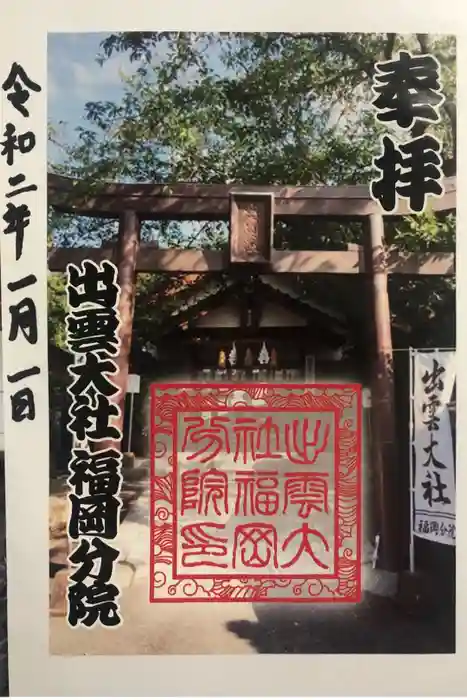 奉拝
出雲大社福岡分院
令和二年一月一日
出雲大社福岡分院印
出雲大社
福岡分院